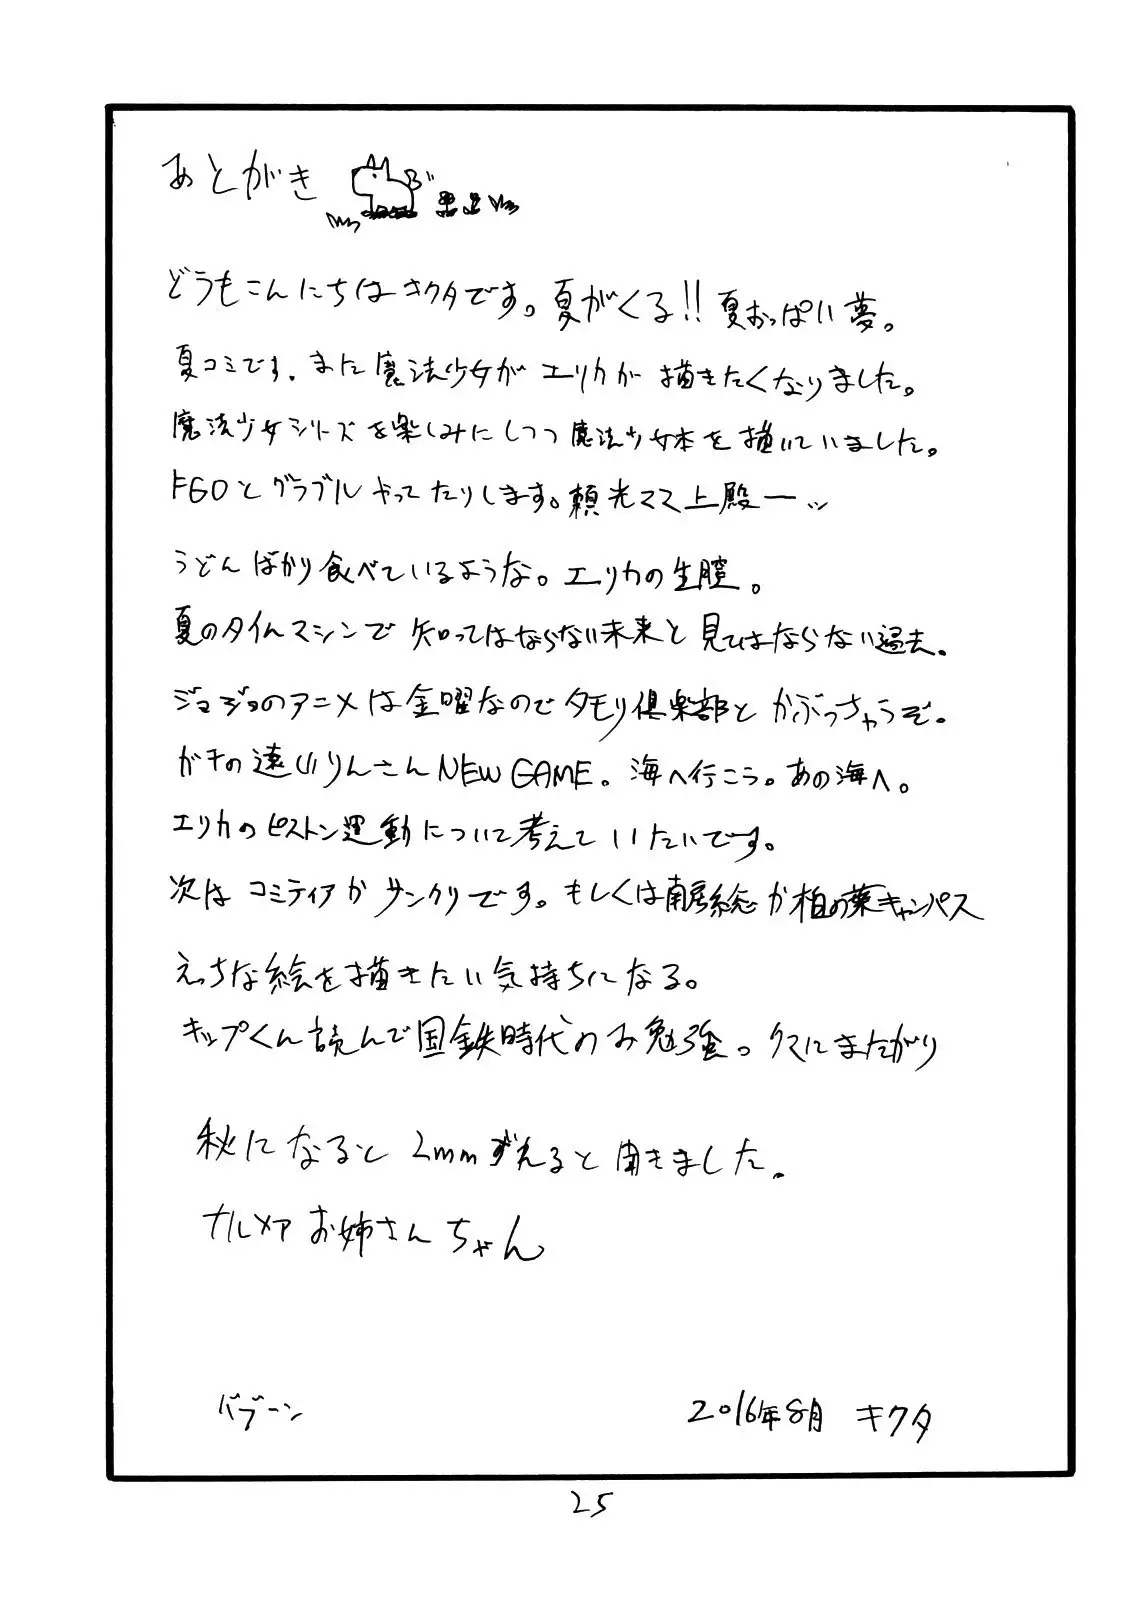 あとがき
どうもこんにちはキクタです。夏がくる!!夏おっぱい夢。
夏コミです。また魔法少女がエリカが描きたくなりました。
魔法少女シリーズを楽しみにしつつ魔法少女本を描いていました。
FGOとグラブルやってたりします。頼光ママ上殿ーッ
うどんばかり食べているような。エリカの生膣。
夏のタイムマシンで知ってはならない未来と見てはならない過去。
ジョジョのアニメは金曜なのでタモリ倶楽部とかぶっちゃうぞ。
ガチの遠山りんさんNEW GAME。海へ行こう。あの海へ。
エリカのピストン運動について考えていたいです。
次はコミティアかサンクリです。もしくは南房総か柏の葉キャンパス
えっちな絵を描きたい気持ちになる。
キップくん読んで国鉄時代のお勉強。クマにまたがり
秋になると2mmずれると聞きました。
ナルメアお姉さんちゃん
バブーン
2016年8月 キクタ
25